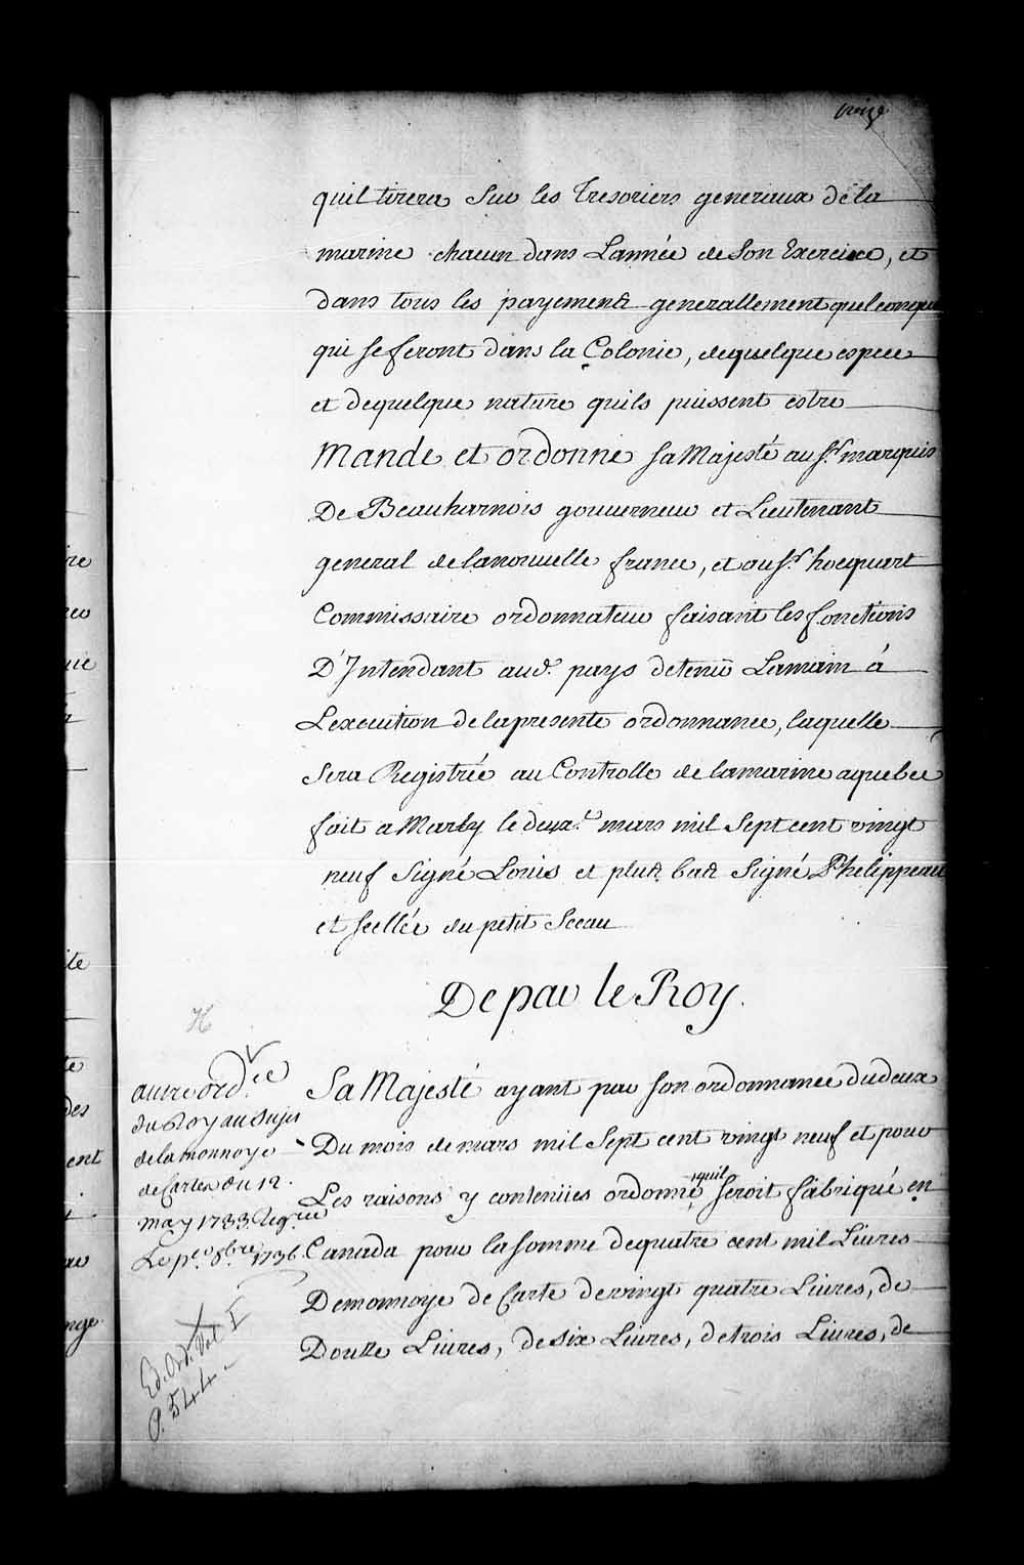 treize
quil tirera Sur les Tresoriers generaux dela
marine chacun dans Lannée de Son Exercice, et
dans tous les payements generallement quelconque
qui se feront dans la Colonie, dequelque espece
et dequelque nature quils puissent estre
Mande et ordonne sa Majesté au Sr. marquis
De Beauharnois gouverneur et Lieutenant
general de lanouvelle france, et au Sr. hocquart
Commissaire ordonnateur faisant les fonctions
D'Intendant aud. pays detenir Lamain á
Lexecution de lapresente ordonnance, laquelle
Sera Registrée au Controlle de lamarine aquebec
fait a Marly le deuxe. mars mil Sept cent vingt
neuf Signé Louis et plus bas Signé Phelippeau
et scellée du petit Sceau
De par le Roy.
Sa Majesté ayant par son ordonnance du deux
Du mois de mars mil Sept cent vingt neuf et pour
Les raisons y contenües ordonné quil seroit fabriqué en
Canada pour la somme dequatre cent mil Livres
Demonnoye de Carte de vingt quatre Livres, de
Douze Livres, de six Livres, de trois Livres, de
autre ord.ce
du Roy au Sujet
de la monnoye
de Cartes du 12.
may 1733. Regrée
Le pr. 8bre. 1736.
Ed. Ord. Vol I
P. 544
re
ite
te
des
ent
nge